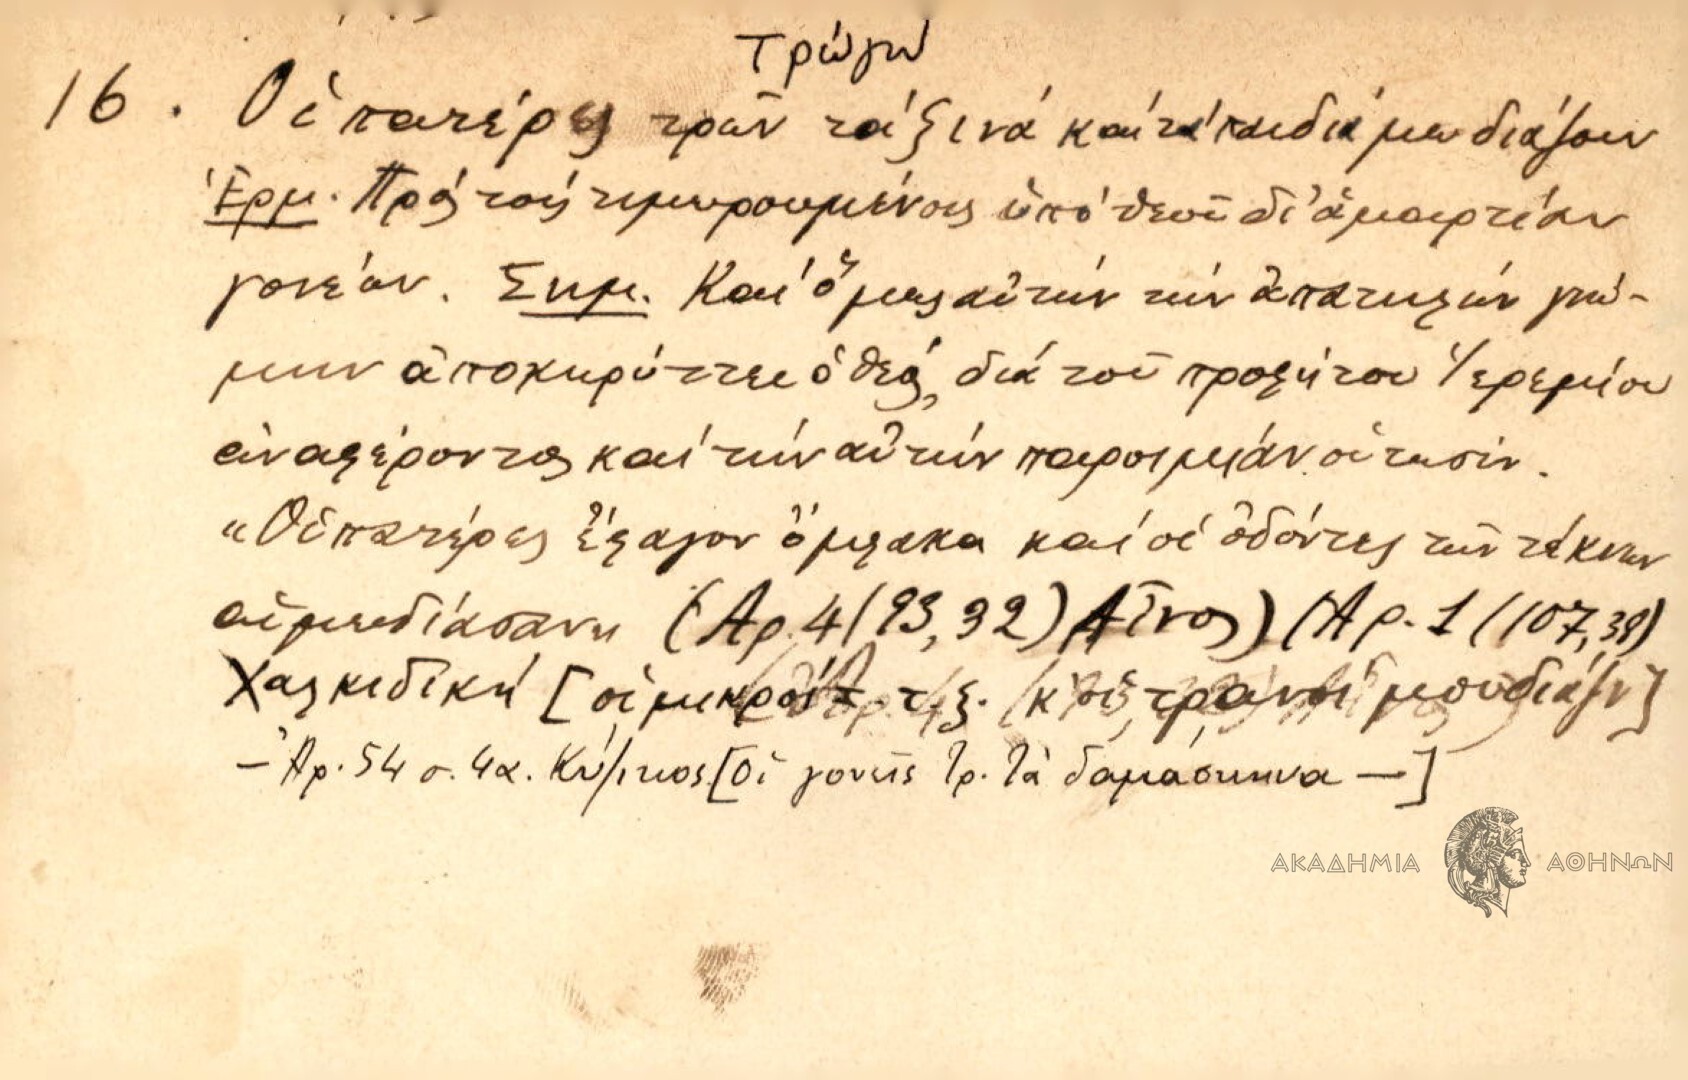 τρώγω
16. Οἱ πατέρες τρῶν τά ξινά καί τά παιδιά μουδιάζουν
Ἑρμ. Πρός τούς τιμωρουμένους ὑπό θεοῦ δι' ἁμαρτίαν
γονέων. Σημ. Καί ὅμως αὐτήν τήν ἀπατηλήν γνώ-
μην ἀποκηρύττει ὁ θεός, διά τοῦ προφήτου Ἱερεμίου
ἀναφέροντος καί τήν αὐτήν παροιμίαν οὑτωσίν.
«Οἱ πατέρες ἔφαγον ὄμφακα καί οἱ ὀδόντες τῶν τέκνων
αἱμωδίασαν» (Ἀρ. 4 (93,92) Αἶνος) (Ἀρ. 1 (107,38)
Χαλκιδική [οἱ μικροί τ. τ. ξ. κ' οἱ τρανοί μουδιάζν]
– Ἀρ. 54 σ. 4α. Κύζικος [Οἱ γονεῖς τρ. τὰ δαμάσκηνα —]
ΑΚΑΔΗΜΙΑ ΑΘΗΝΩΝ